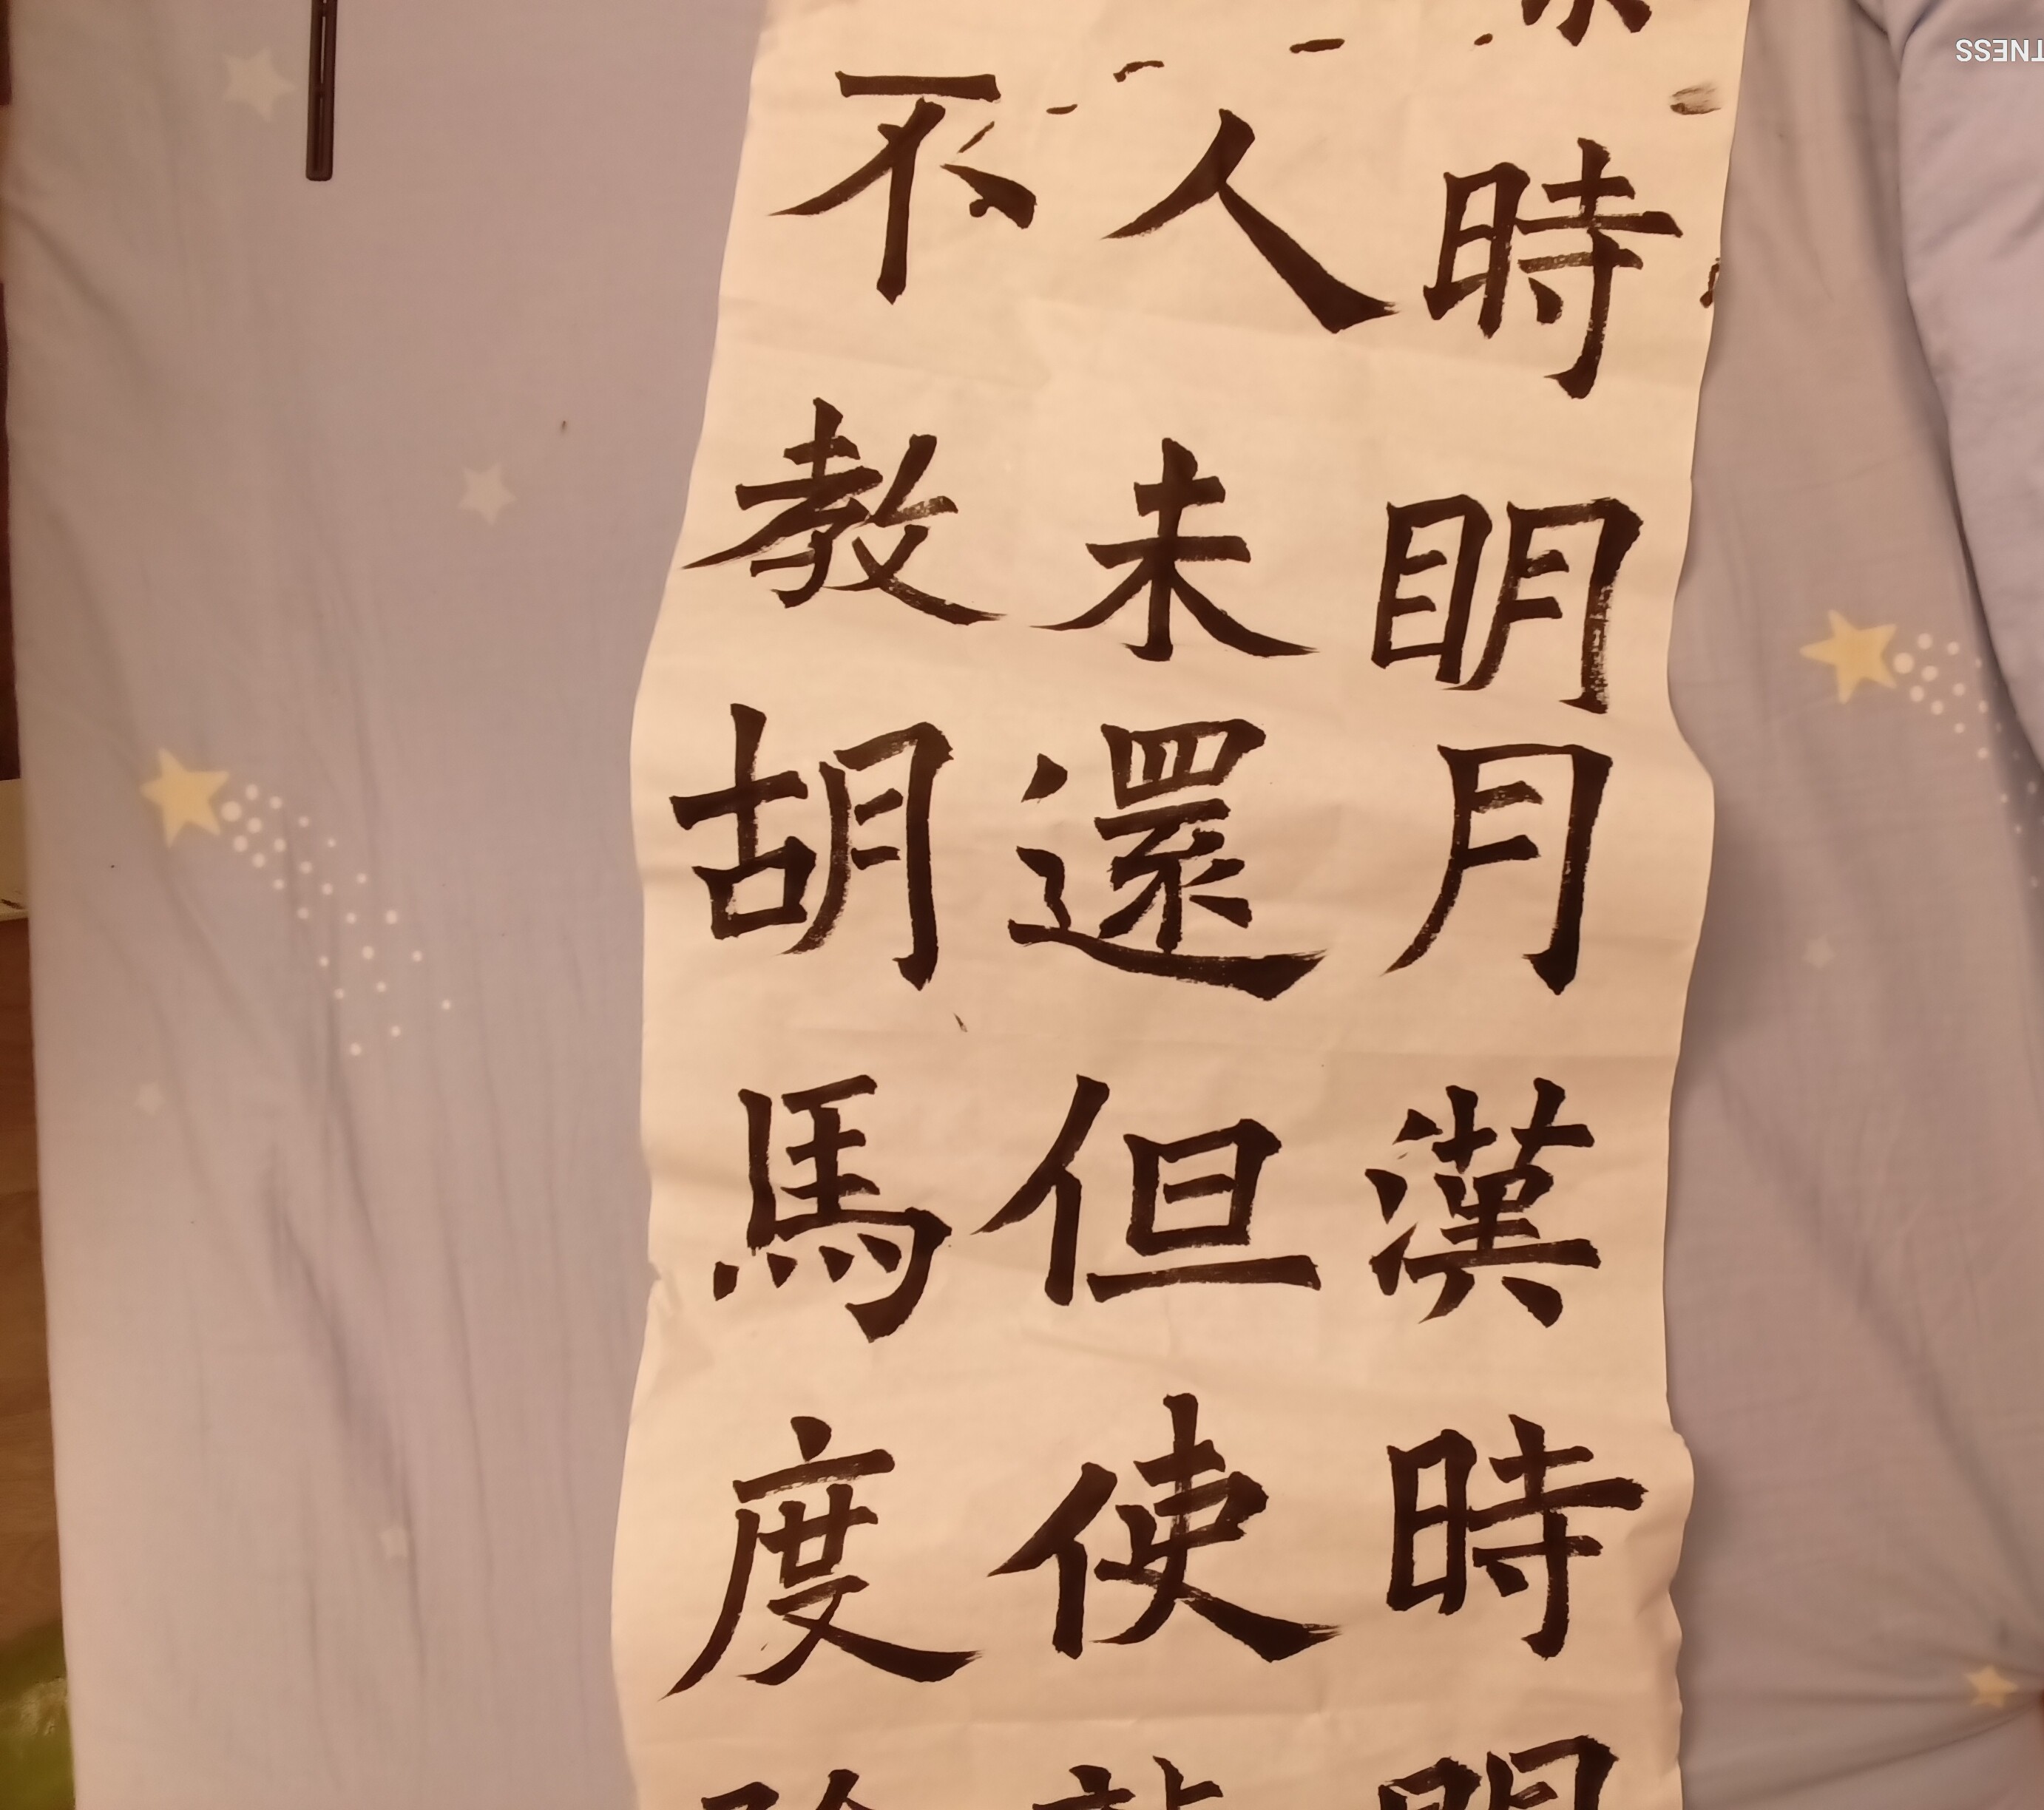 時明月漢時關
人未還但使龍
不教胡馬度陰
TNESS